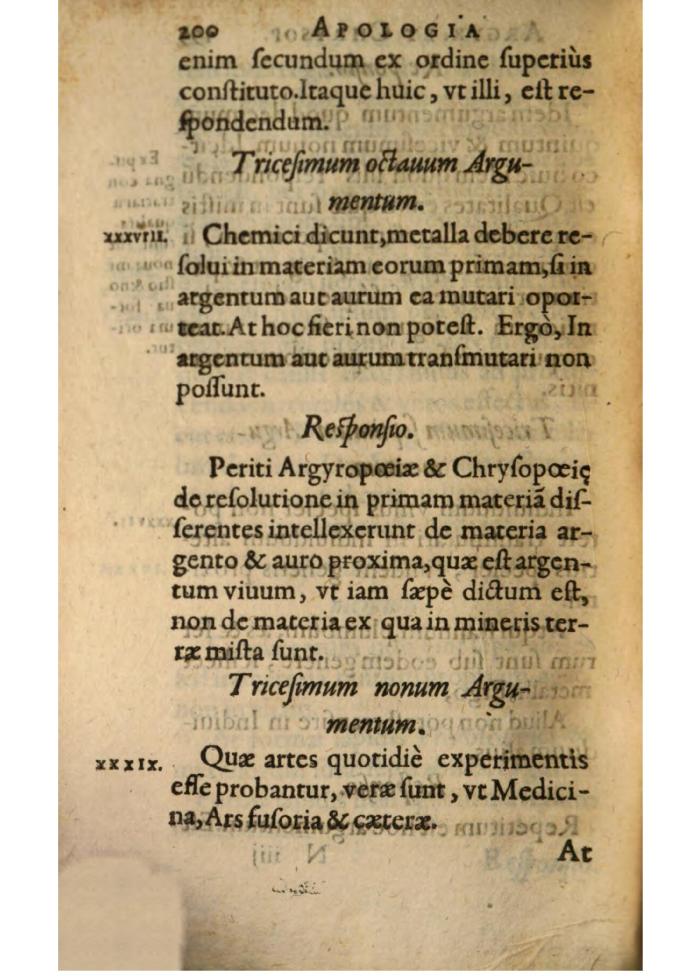 200 APOLOGIA
enim ſecundum ex ordine ſuperiùs
conſtituto.Itaque huic, vt illi, eſt re-
ſpondendum.
Triceſimum octauum Argu-
mentum.
xxxvııı. Chemici dicunt,metalla debere re-
ſolui in materiam eorum primam,ſi in
argentum aut aurum ea mutari opor-
teat. At hoc fieri non poteſt. Ergò, In
argentum aut aurum tranſmutari non
poſſunt.
Reſponſio.
Periti Argyropœiæ & Chryſopœię
de reſolutione in primam materiã diſ-
ſerentes intellexerunt de materia ar-
gento & auro proxima,quæ eſt argen-
tum viuum, vt iam ſæpè dictum eſt,
non de materia ex qua in mineris ter-
ræ miſta ſunt.
Triceſimum nonum Argu-
mentum.
xxxıx. Quæ artes quotidiè experimentis
eſſe probantur, veræ ſunt, vt Medici-
na, Ars fuſoria & cæteræ.
At